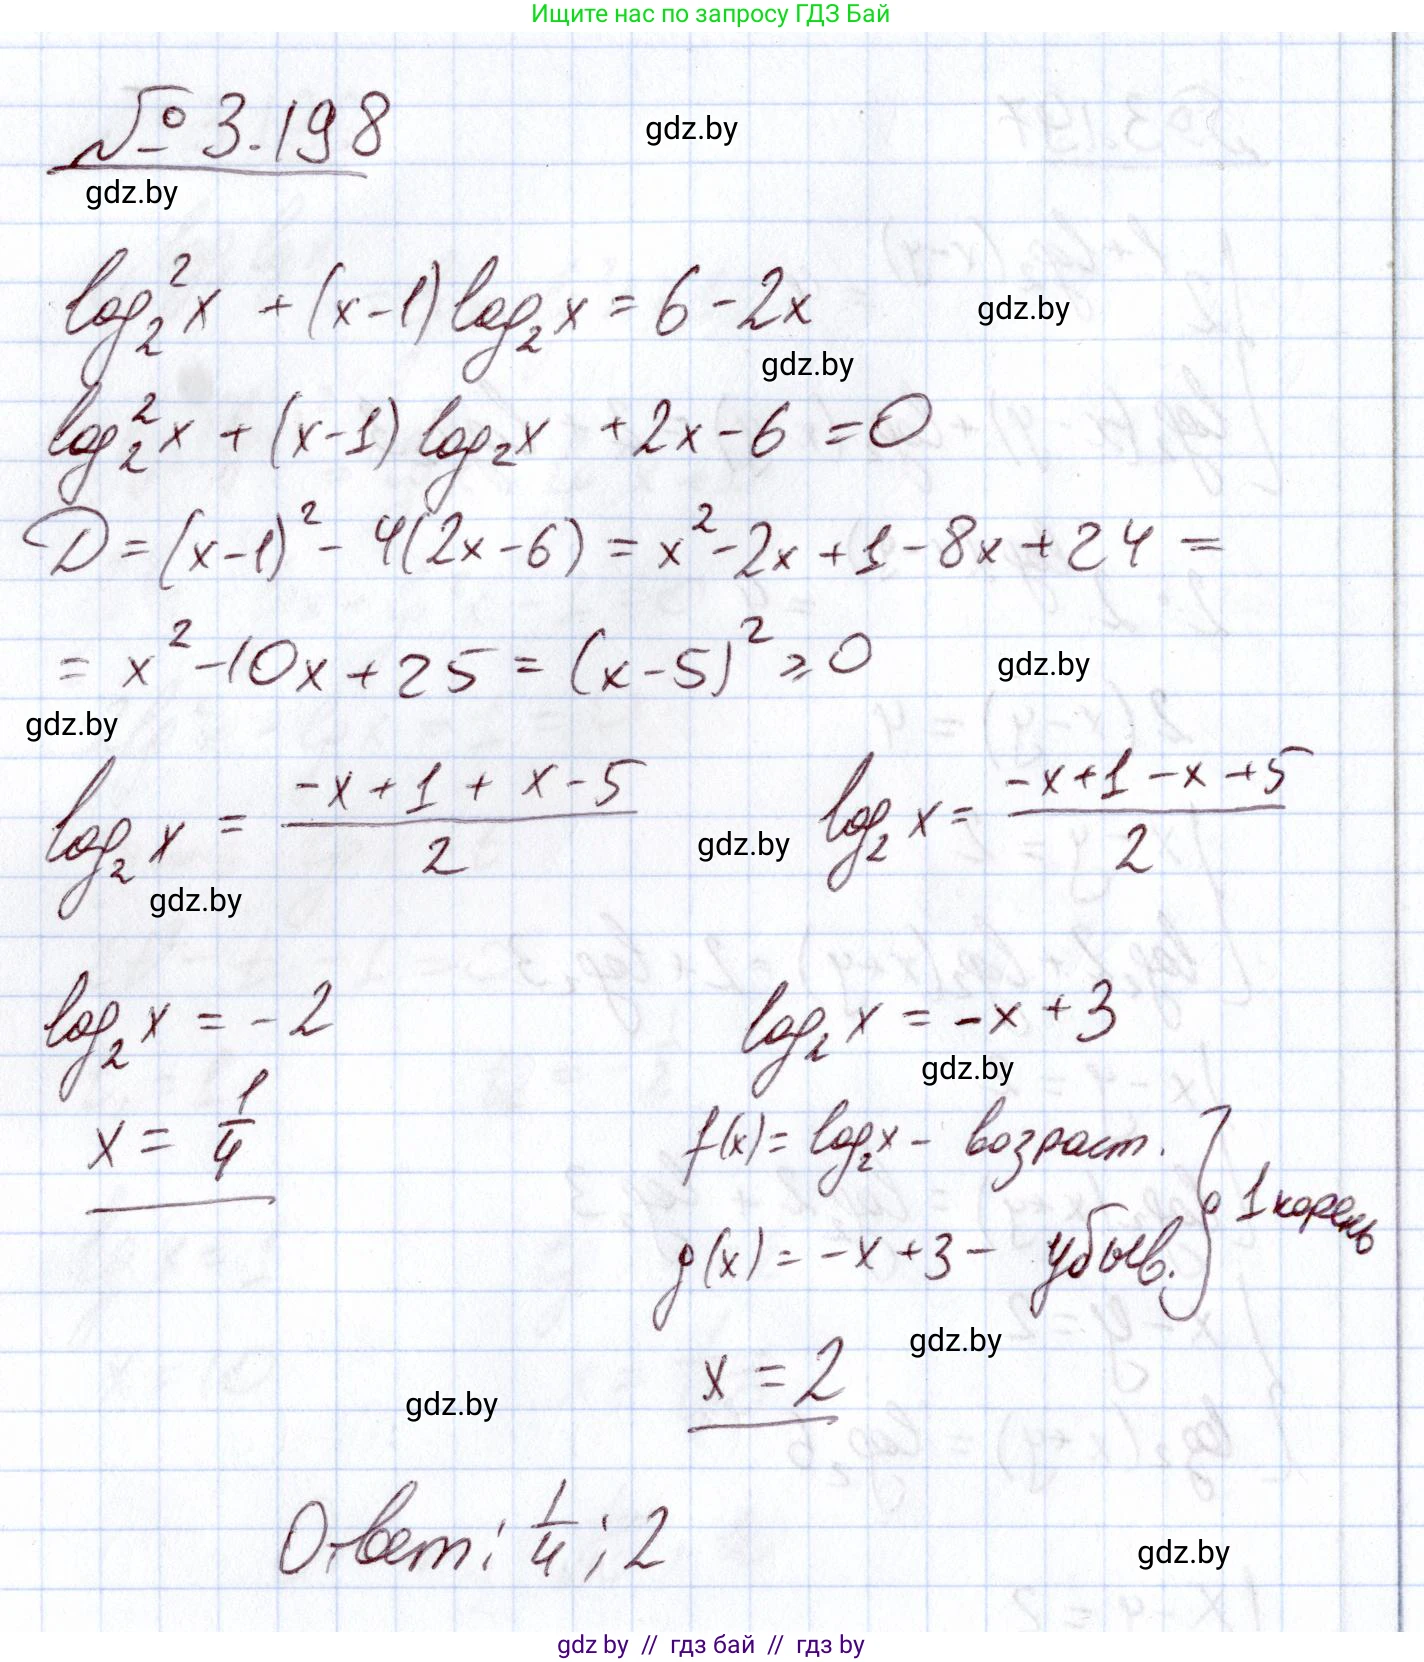 Ищите нас по запросу ГДЗ Бай
№ 3.198
gdz.by
gdz.by
log₂²x + (x-1) log₂x = 6 - 2x
gdz.by
gdz.by
log₂²x + (x-1) log₂x + 2x - 6 = 0
D = (x-1)² - 4(2x-6) = x² - 2x + 1 - 8x + 24 =
= x² - 10x + 25 = (x-5)² ≥ 0
gdz.by
gdz.by
log₂x = (-x+1+x-5)/2
log₂x = (-x+1-x+5)/2
gdz.by
gdz.by
log₂x = -2
log₂x = -x+3
gdz.by
x = 1/4
f(x) = log₂x - возраст.
g(x) = -x+3 - убыв.
} 1 корень
gdz.by
x = 2
gdz.by
Ответ: 1/4; 2
gdz.by
gdz by // гдз бай // гдз by